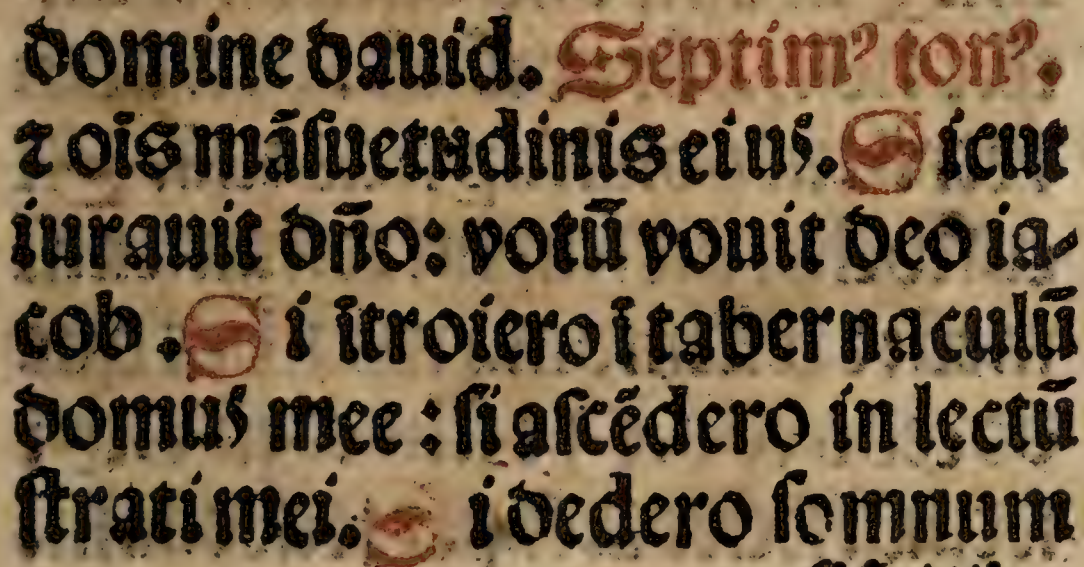 domine dauid. Septimꝰ tonꝰ.
⁊ oīs māſuetudinis eiuſ. Sicut
iurauit dn̄o: votū vouit deo ia-
cob. Si ītroiero ī tabernaculū
domuſ mee: ſi aſcēdero in lectū
ſtrati mei. Si dedero ſomnum